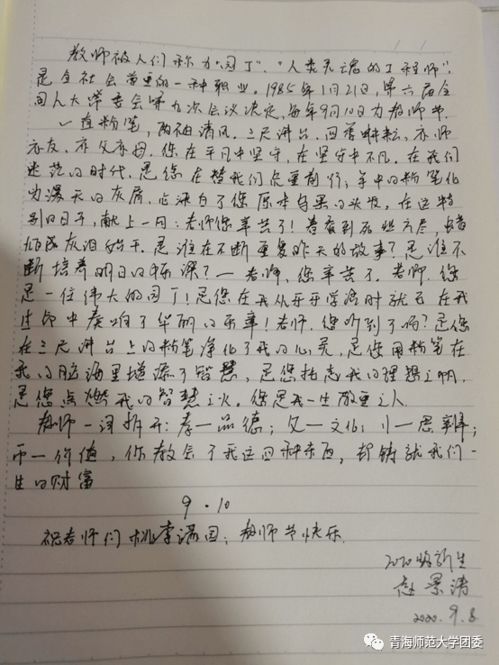 教师被人们称为"园丁"、"人类灵魂的工程师",
是全社会尊重的一种职业。1985年1月21日,第六届全
国人大常委会第九次会议决定,每年9月10日为教师节。
一连粉笔,两袖清风,三尺讲台,四季耕耘,亦师
亦友,亦父亦母,您在平凡中坚守,在坚守中不凡。在我们
迷茫的时代,是您在替我们负重前行;手中的粉笔化
为漫天的灰屑,也染白了您原本乌黑的头发,在这特
别的日子,献上一句:老师您辛苦了!春蚕到死丝方尽,蜡炬
成灰泪始干。是谁在不断重复昨天的故事?是谁不
断培养明日的栋梁?——老师,您辛苦了。老师,您
是一位伟大的园丁!是您在我从开学时就已在我
生命中奏响了华丽的乐章!老师,您听到了吗?是您
在三尺讲台上的粉笔净化了我的心灵,是您用粉笔在
我的脑海里增添了智慧,是您扬起我的理想之帆,
是您点燃我的智慧之火。您是我一生敬重之人
教师一词拆开:孝一品德;文一文化;丨一思辩;
币一价值,你教会了我这四种东西,却铸就我们一
生的财富
9·10
祝老师们桃李满园;教师节快乐
2020级新生
赵景涛
2020.9.8
青海师范大学团委